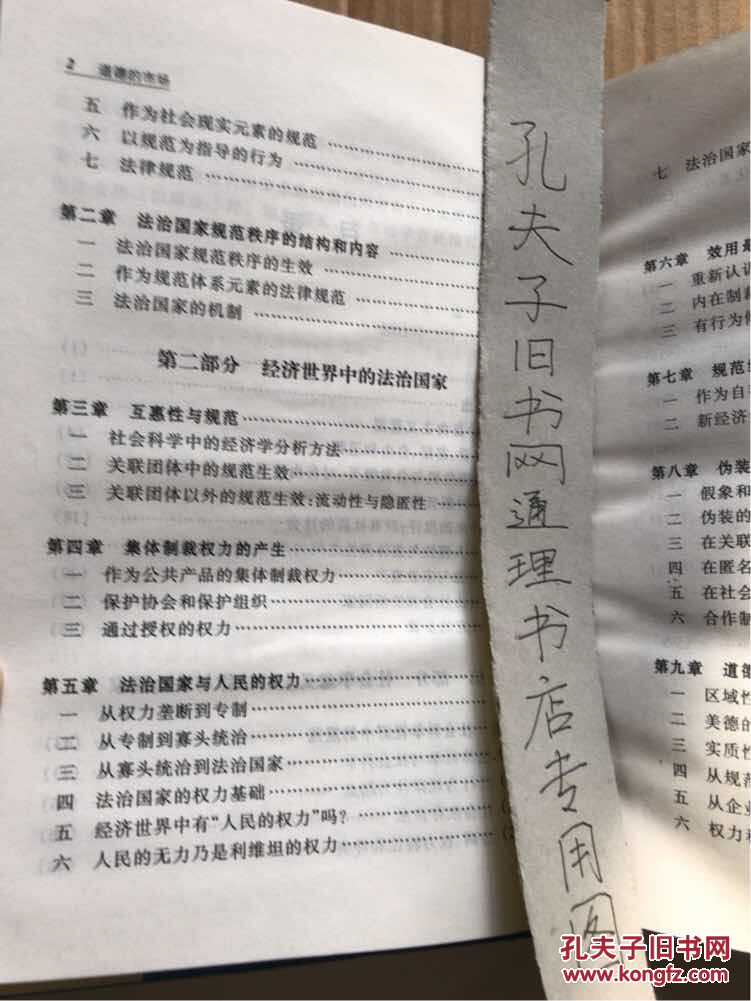 2 道德的市场
五 作为社会现实元素的规范
六 以规范为指导的行为
七 法律规范
第二章 法治国家规范秩序的结构和内容
一 法治国家规范秩序的生效
二 作为规范体系元素的法律规范
三 法治国家的机制
第二部分 经济世界中的法治国家
第三章 互惠性与规范
一 社会科学中的经济学分析方法
二 关联团体中的规范生效
三 关联团体以外的规范生效:流动性与隐匿性
第四章 集体制裁权力的产生
一 作为公共产品的集体制裁权力
二 保护协会和保护组织
三 通过授权的权力
第五章 法治国家与人民的权力
一 从权力垄断到专制
二 从专制到寡头统治
三 从寡头统治到法治国家
四 法治国家的权力基础
五 经济世界中有“人民的权力”吗?
六 人民的无力乃是利维坦的权力
孔夫子旧书网通理书店专用图
七 法治国家
第六章 效用最
一 重新认识
二 内在制裁
三 有行为
第七章 规范
一 作为自
二 新经济
第八章 伪装
一 假象和
二 伪装的
三 在关联
四 在匿名
五 在社会
六 合作制
第九章 道德
一 区域性
二 美德的
三 实质性
四 从规范
五 从企业
六 权力
孔夫子旧书网
www.kongfz.com